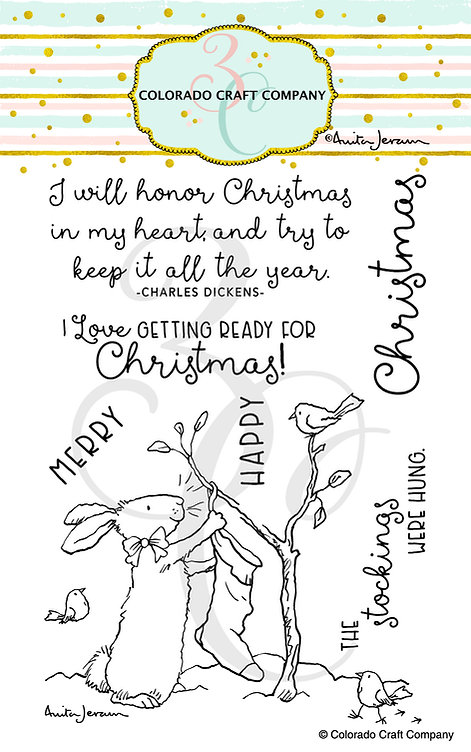 3C
COLORADO CRAFT COMPANY
©Anita Jeram
I will honor Christmas
in my heart, and try to
keep it all the year.
-CHARLES DICKENS-
Christmas
I Love GETTING READY FOR
Christmas!
MERRY
HAPPY
THE stockings
WERE HUNG.
3C
Anita Jeram
© Colorado Craft Company